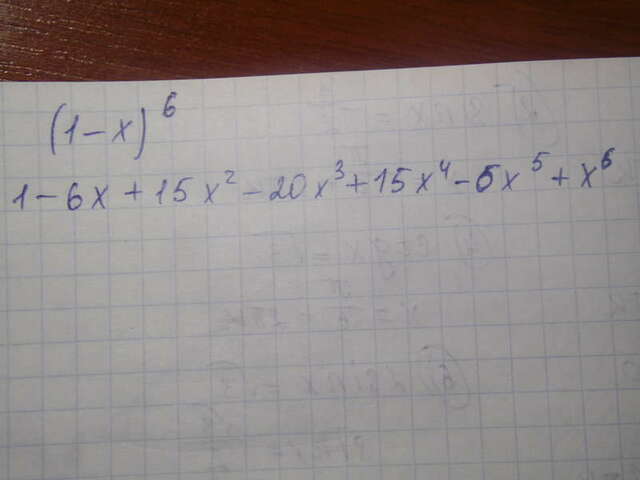 (1-x)^6
1-6x+15x²-20x³+15x⁴-6x⁵+x⁶